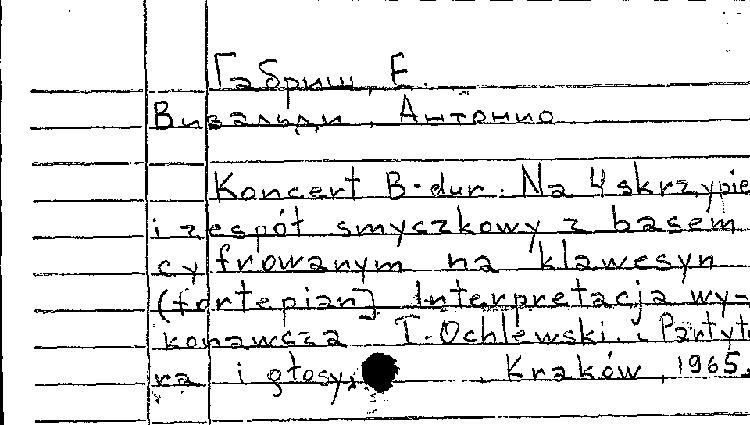 Габриш, Е.
Вивальди, Антонио
Koncert B-dur. Na 4 skrzypie
i zespół smyczkowy z basem
cyfrowanym na klawesyn
(fortepian] Interpretacja wy-
konawcza T. Ochlewski. Partytu
ra i głosy. Kraków, 1965.